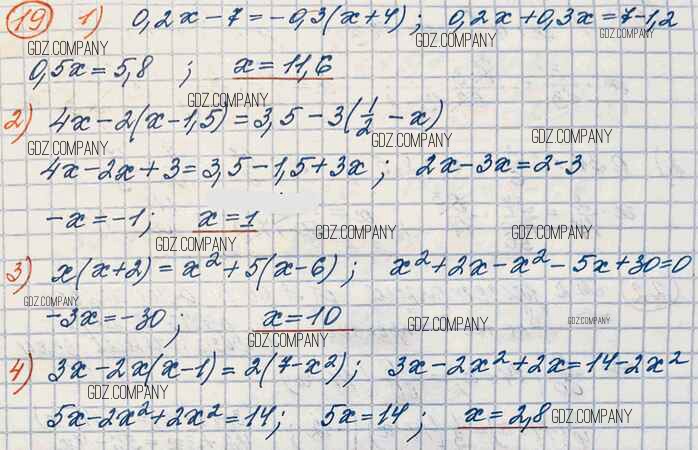 19 1) 0,2x-7=-0,3(x+4); 0,2x+0,3x=7-1,2
GDZ.COMPANY GDZ.COMPANY GDZ.COMPANY
0,5x=5,8 ; x=11,6
GDZ.COMPANY
2) 4x-2(x-1,5)=3,5-3(1/2-x)
GDZ.COMPANY GDZ.COMPANY GDZ.COMPANY
4x-2x+3=3,5-1,5+3x; 2x-3x=2-3
-x=-1; x=1
GDZ.COMPANY GDZ.COMPANY GDZ.COMPANY
3) x(x+2)=x²+5(x-6); x²+2x-x²-5x+30=0
GDZ.COMPANY
-3x=-30; x=10
GDZ.COMPANY GDZ.COMPANY GDZ.COMPANY
4) 3x-2x(x-1)=2(7-x²); 3x-2x²+2x=14-2x²
GDZ.COMPANY
5x-2x²+2x²=14; 5x=14; x=2,8 GDZ.COMPANY